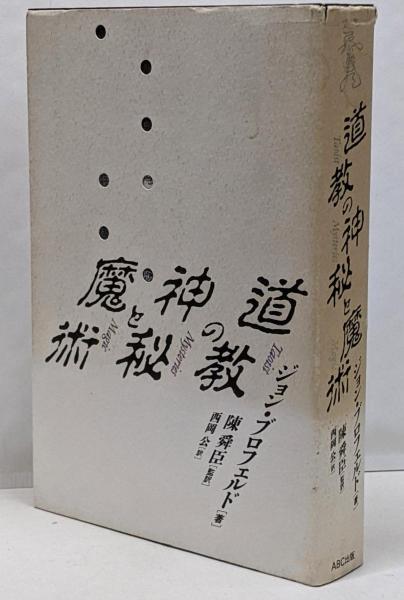 道教の
神秘と
魔術
Taoist
Mysteries
Magic
ジョン・ブロフェルド[著]
陳舜臣[監訳]
西岡公[訳]
道教の神秘と魔術
Taoist
Mysteries
ジョン・ブロフェルド 著
陳舜臣 監訳
西岡公 訳
ABC出版